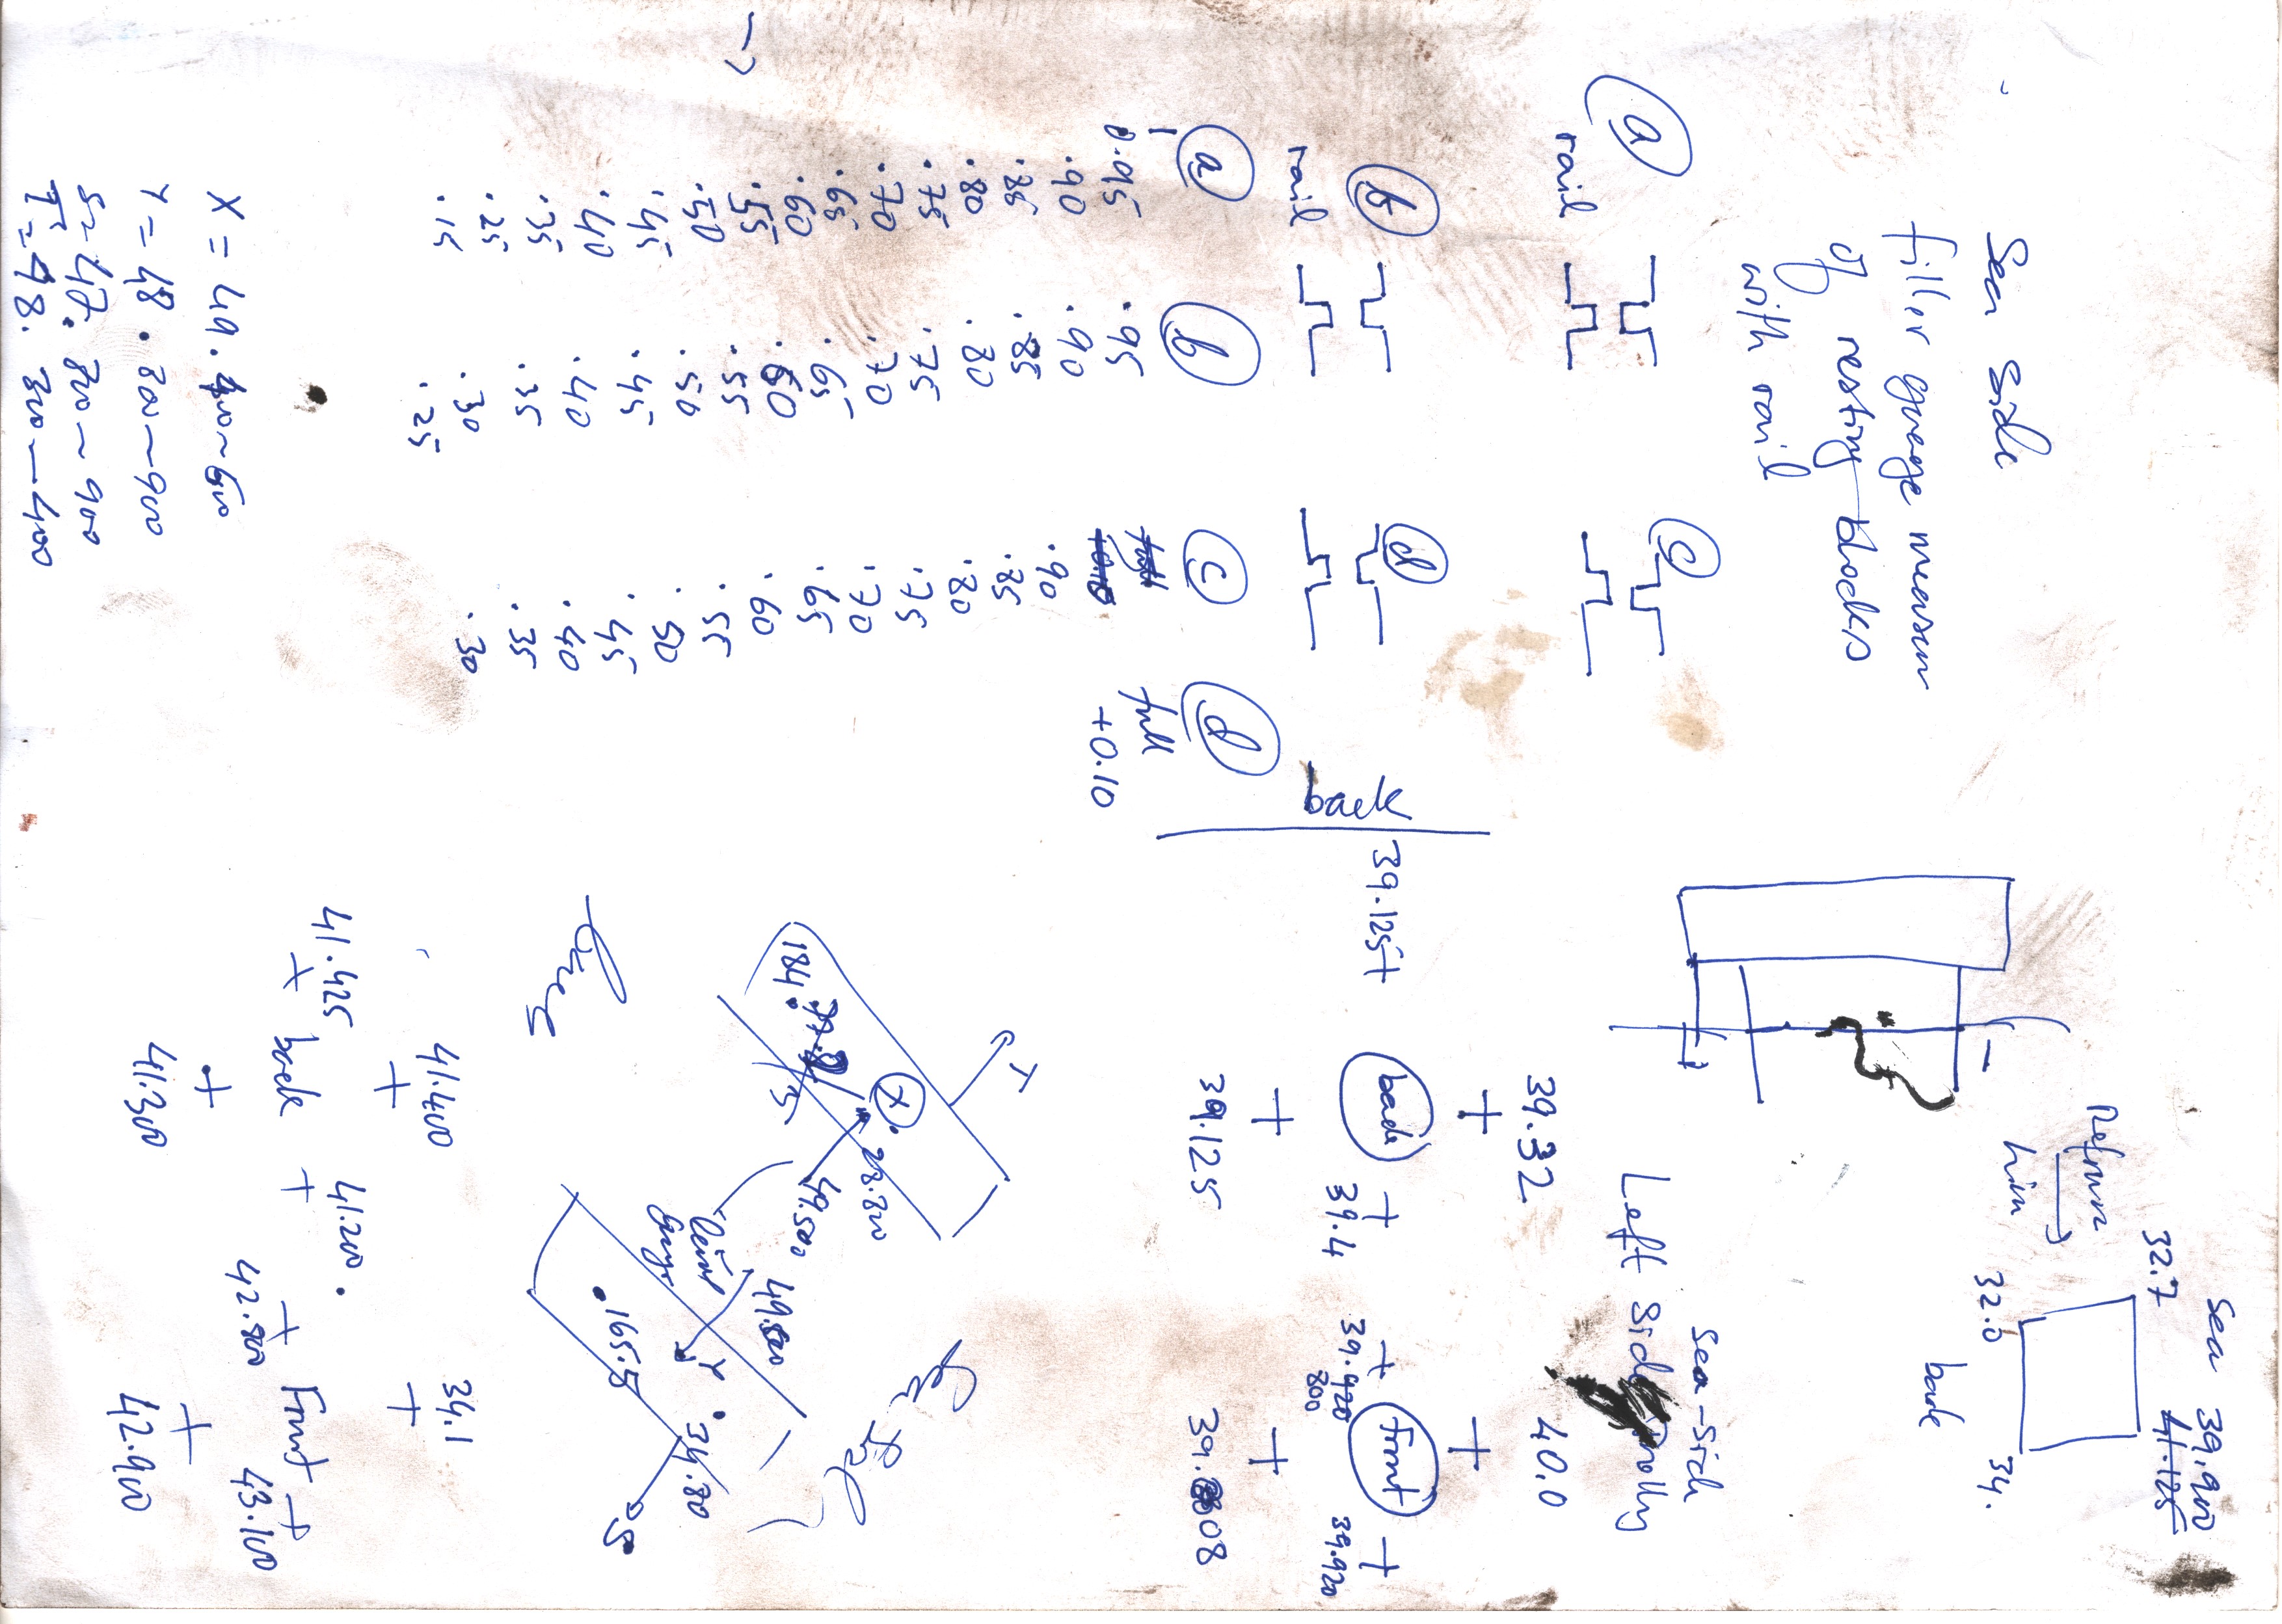 Sea Side
filler guage measum
of resting blocks
with rail
a
rail
c
b
rail
d
a
0.95
.90
.85
.80
.75
.70
.65
.60
.55
.50
.45
.40
.35
.25
.15
b
.95
.90
.85
.80
.75
.70
.65
.60
.55
.50
.45
.40
.35
.30
.25
c
.90
.85
.80
.75
.70
.65
.60
.55
.50
.45
.40
.35
.30
d
full
+0.10
X = 49.400~600
Y = 48.800~900
S = 47.800~900
T = 48.300~400
Sea 39.900
41.125
32.7
32.0
34.
back
Sea-Side
Left Side Trolly
39.32
40.0
back
39.125+
back
39.4
39.800
Front
39.920
39.125
T
184.
X
.28.800
49.500
49.500
Y
.34.80
165.5
S
41.400
34.1
41.425
back
41.200
42.800
Front
43.100
41.300
42.900